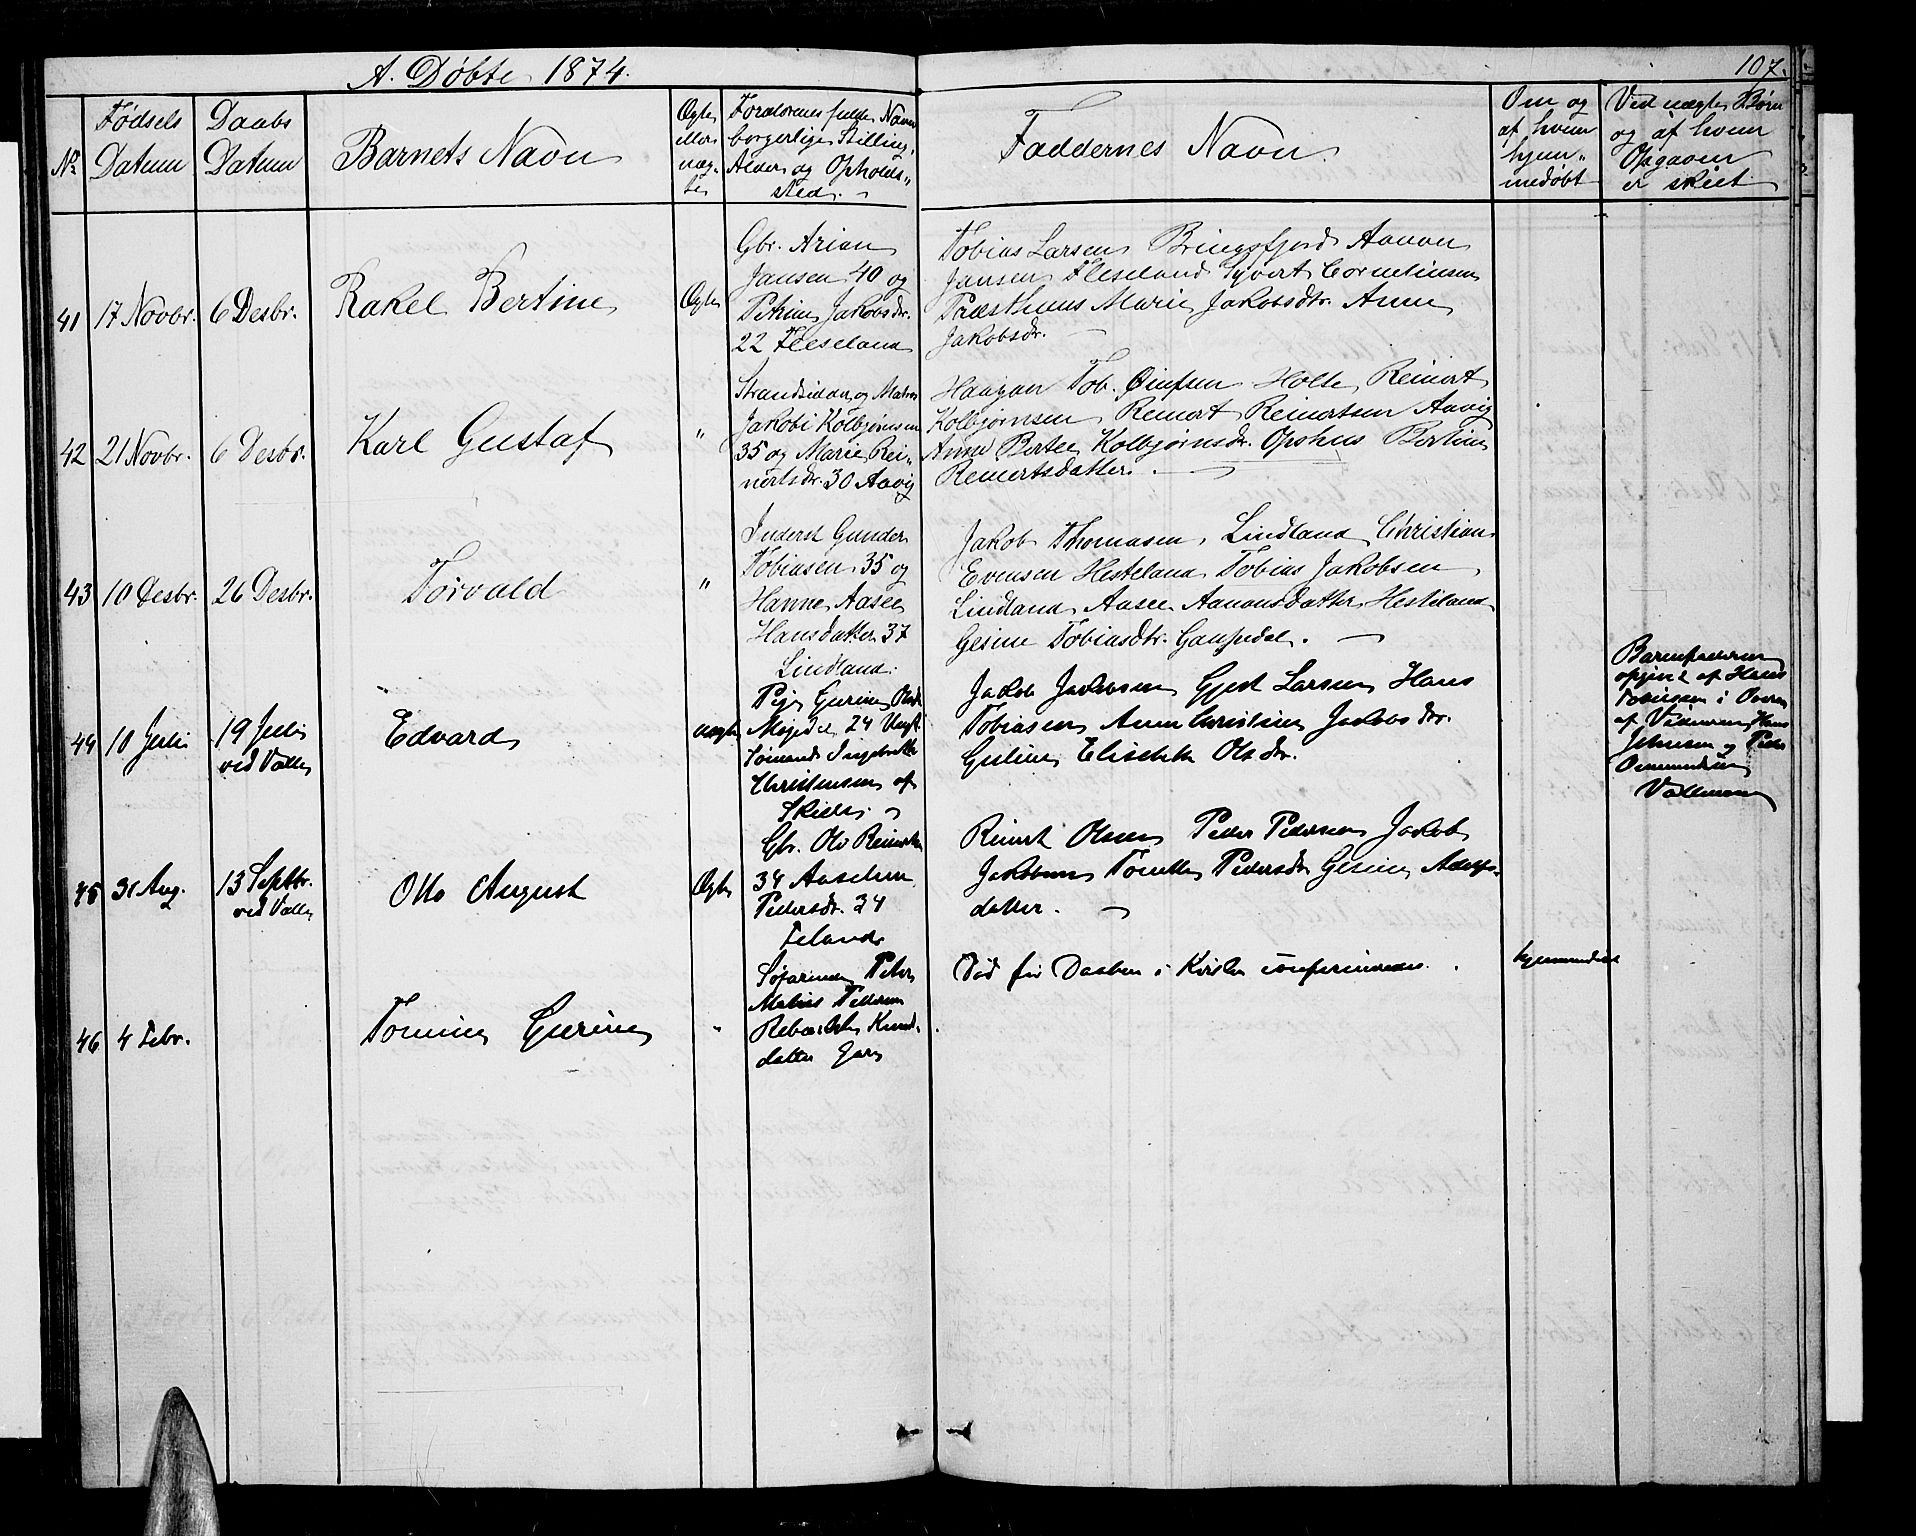 A. Døbte 1874.
107.
No
Fødsels Datum
Daabs Datum
Barnets Navn
Ægte eller uægte
Forældrenes fulde Navn
borgerlige Stilling,
Alder og Opholds-
sted.
Faddernes Navn.
Om og
af hvem
hjem-
medøbt
Ved uægte Børn
og af hvem
Opgaven
er skeet.
41
17 Novbr.
6 Desbr.
Rakel Bertine
Ægte
Gbr. Arian
Jansen 40 og
Petrine Jakobsdr.
22 Fleseland
Tobias Larsen Bringsfjord Aanon
Jansen Fleseland Syvert Corneliusen
Præsthuus Marie Jakobsdtr. Anne
Jakobsdr.
42
21 Novbr.
6 Desbr.
Karl Gustaf
"
Strandsidder og Matros
Jakobi Kolbjørnsen
35 og Marie Rei-
nertsdr. 30 Aavig
Haagan Tob. Holte Reinert
Kolbjørnsen Reinert Reinertsen Aavig
Anne Berte Kolbjørnsdr. Opshus Bertine
Reinertsdatter.
43
10 Desbr.
26 Desbr.
Torvald
"
Inderst Gunder
Tobiasen 35 og
Hanne Aasee
Hansdatter 37
Lindland.
Jakob Thomasen, Lindland Christian
Evensen Hesteland Tobias Jakobsen
Lindland Aasee Aanonsdatter Hesteland
Gesine Tobiasdtr.
44
10 Juli
19 Juli
ved Valle
Edvard
uægte
Pige Gurine
24 Ungk.
Christensen af
Jakob Jakobsen Gjert Larsen Hans
Tobiasen Anne Christine Jakobsdr.
Guline Elisebth Olsdr.
Barnefaderen
opgivet af Hans
Tobiassen i Øvre
af Valle
Hans
Johnsen og Peder
45
31 Aug.
13 Septbr.
ved Valle
Otto August
Ægte
Gbr. Ole Reinertsen
34
Pedersdr. 34
Reinert Olsen Peder Pedersen Jakob
Jakobsen Tonette Pedersdr Gesine
datter.
46
4 Febr.
Tomine Gurine
"
Peter
Matias Pedersen
Knud-
datter
Død før Daaben i Kirken
hjemmedøbt